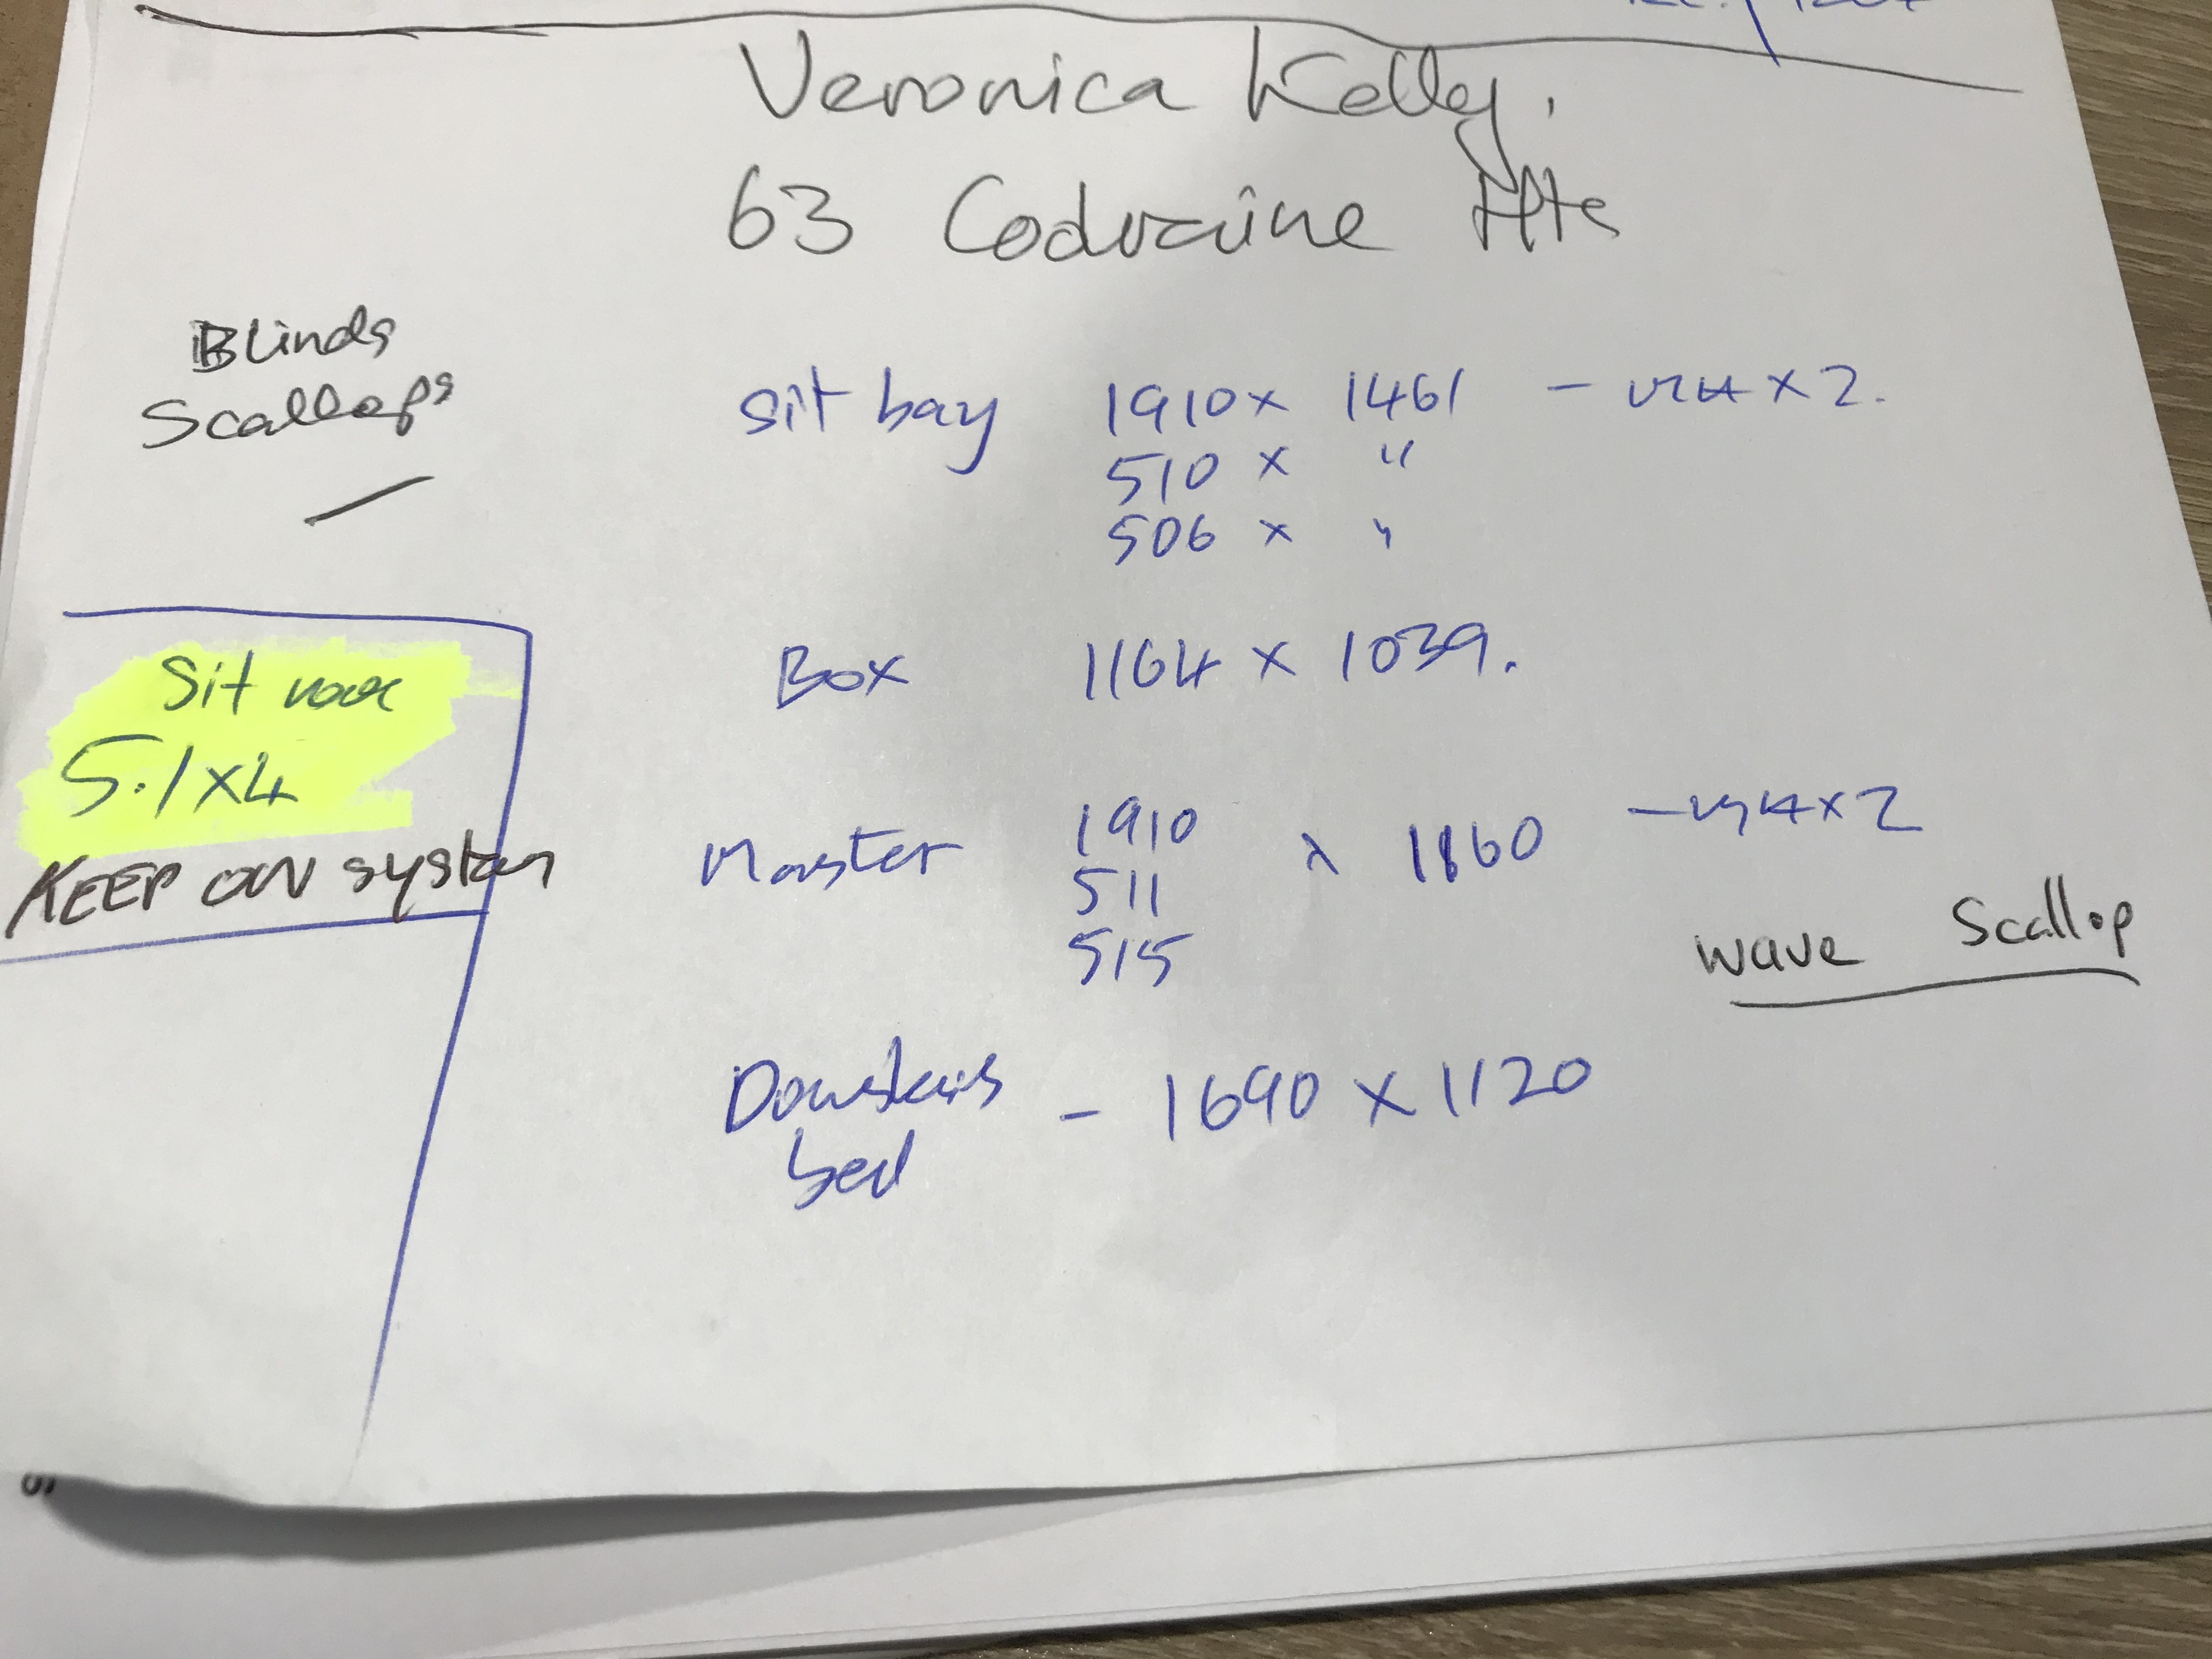 Veronica Kelly.
63 Codraine Hts
Blinds
Scallops
Sit bay 1910 x 1461 - x 2.
510 x "
506 x "
Sit room
5.1 x 4
KEEP ON system
Box 1164 x 1039.
Master 1910 x 1860 - x 2
511
515
wave Scallop
Downstairs - 1690 x 1120
bed